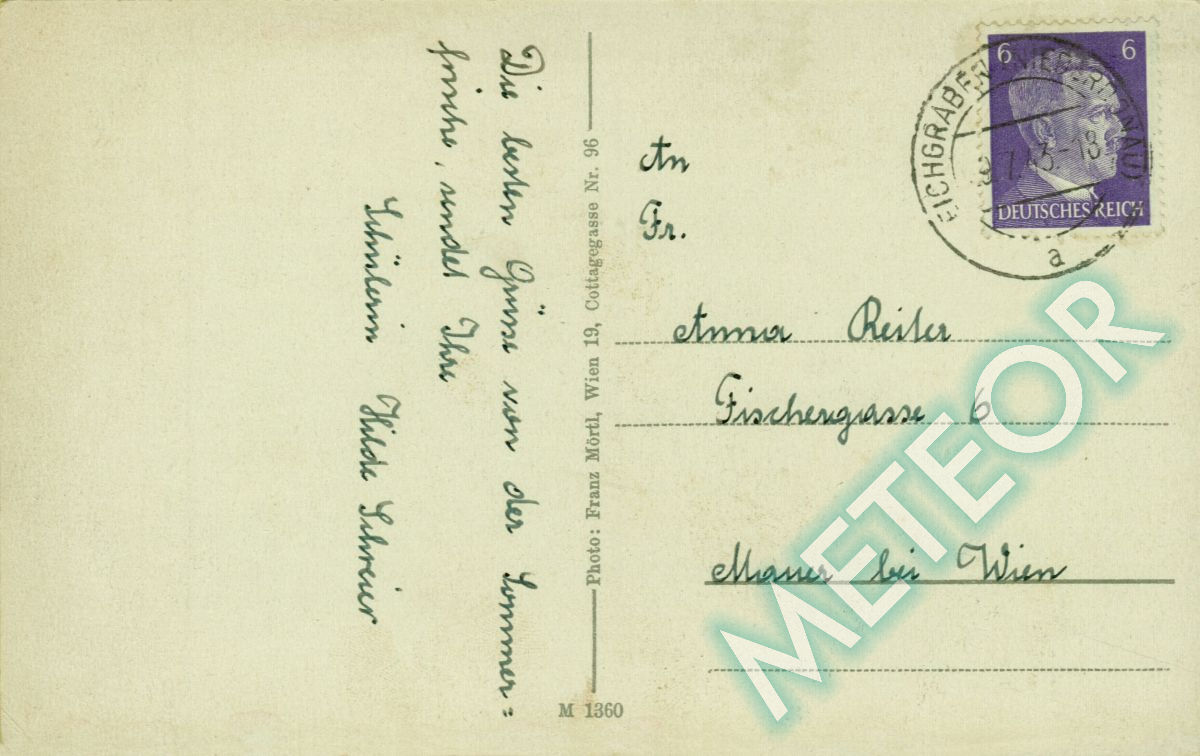 Die besten Grüsse von der Sommer=
frische, sendet Ihre
Schülerin Hilde Schreier
Photo: Franz Mörtl, Wien 19, Cottagegasse Nr. 96
M 1360
6 6
DEUTSCHES REICH
EICHGRABEN
9.7.43-18
a
An
Fr.
Anna Reiter
Fischergasse 6
Mauer bei Wien
METEOR